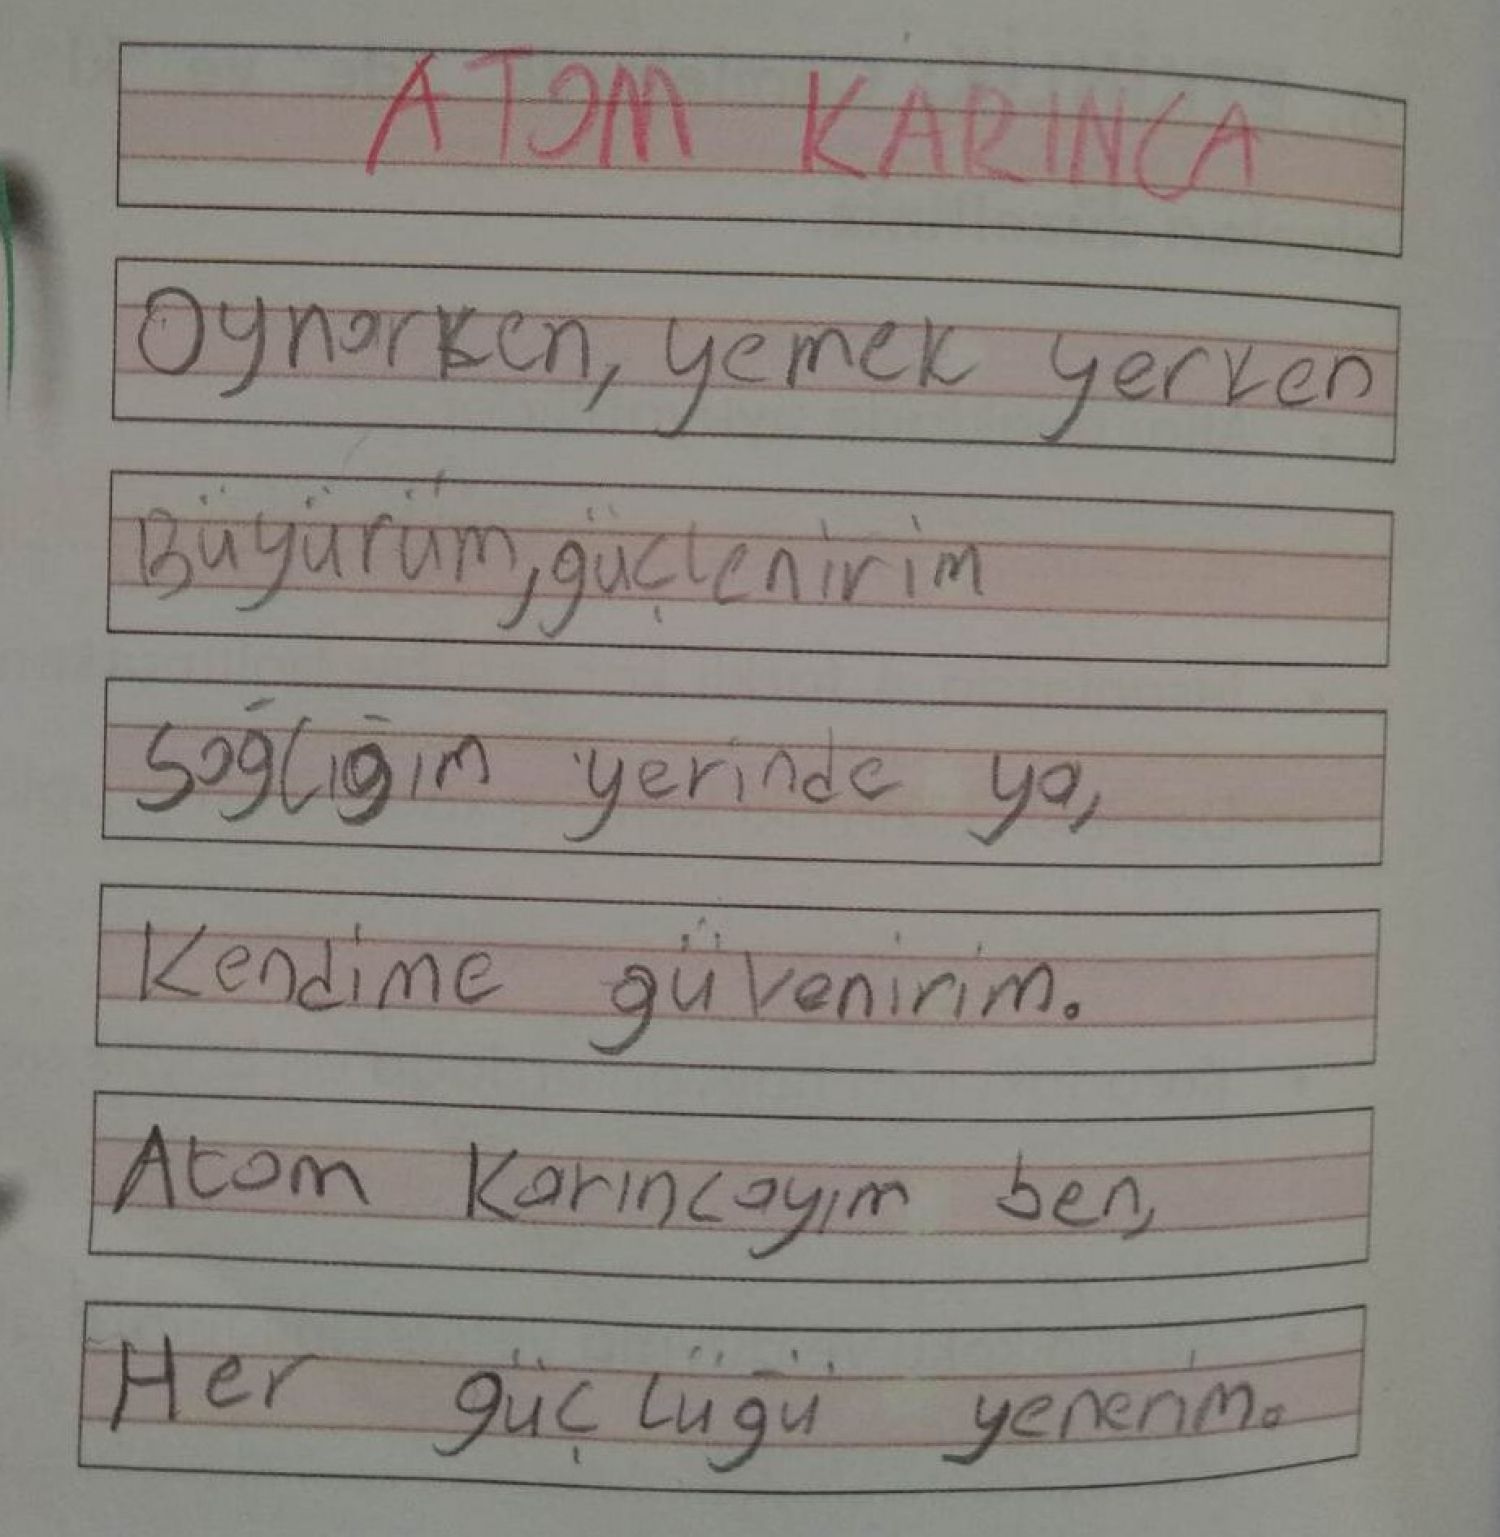 ATOM KARINCA
Oynarken, yemek yerken
Büyürüm, güçlenirim
Sağlığım yerinde ya,
Kendime güvenirim.
Atom Karıncayım ben,
Her güçlüğü yenerim.